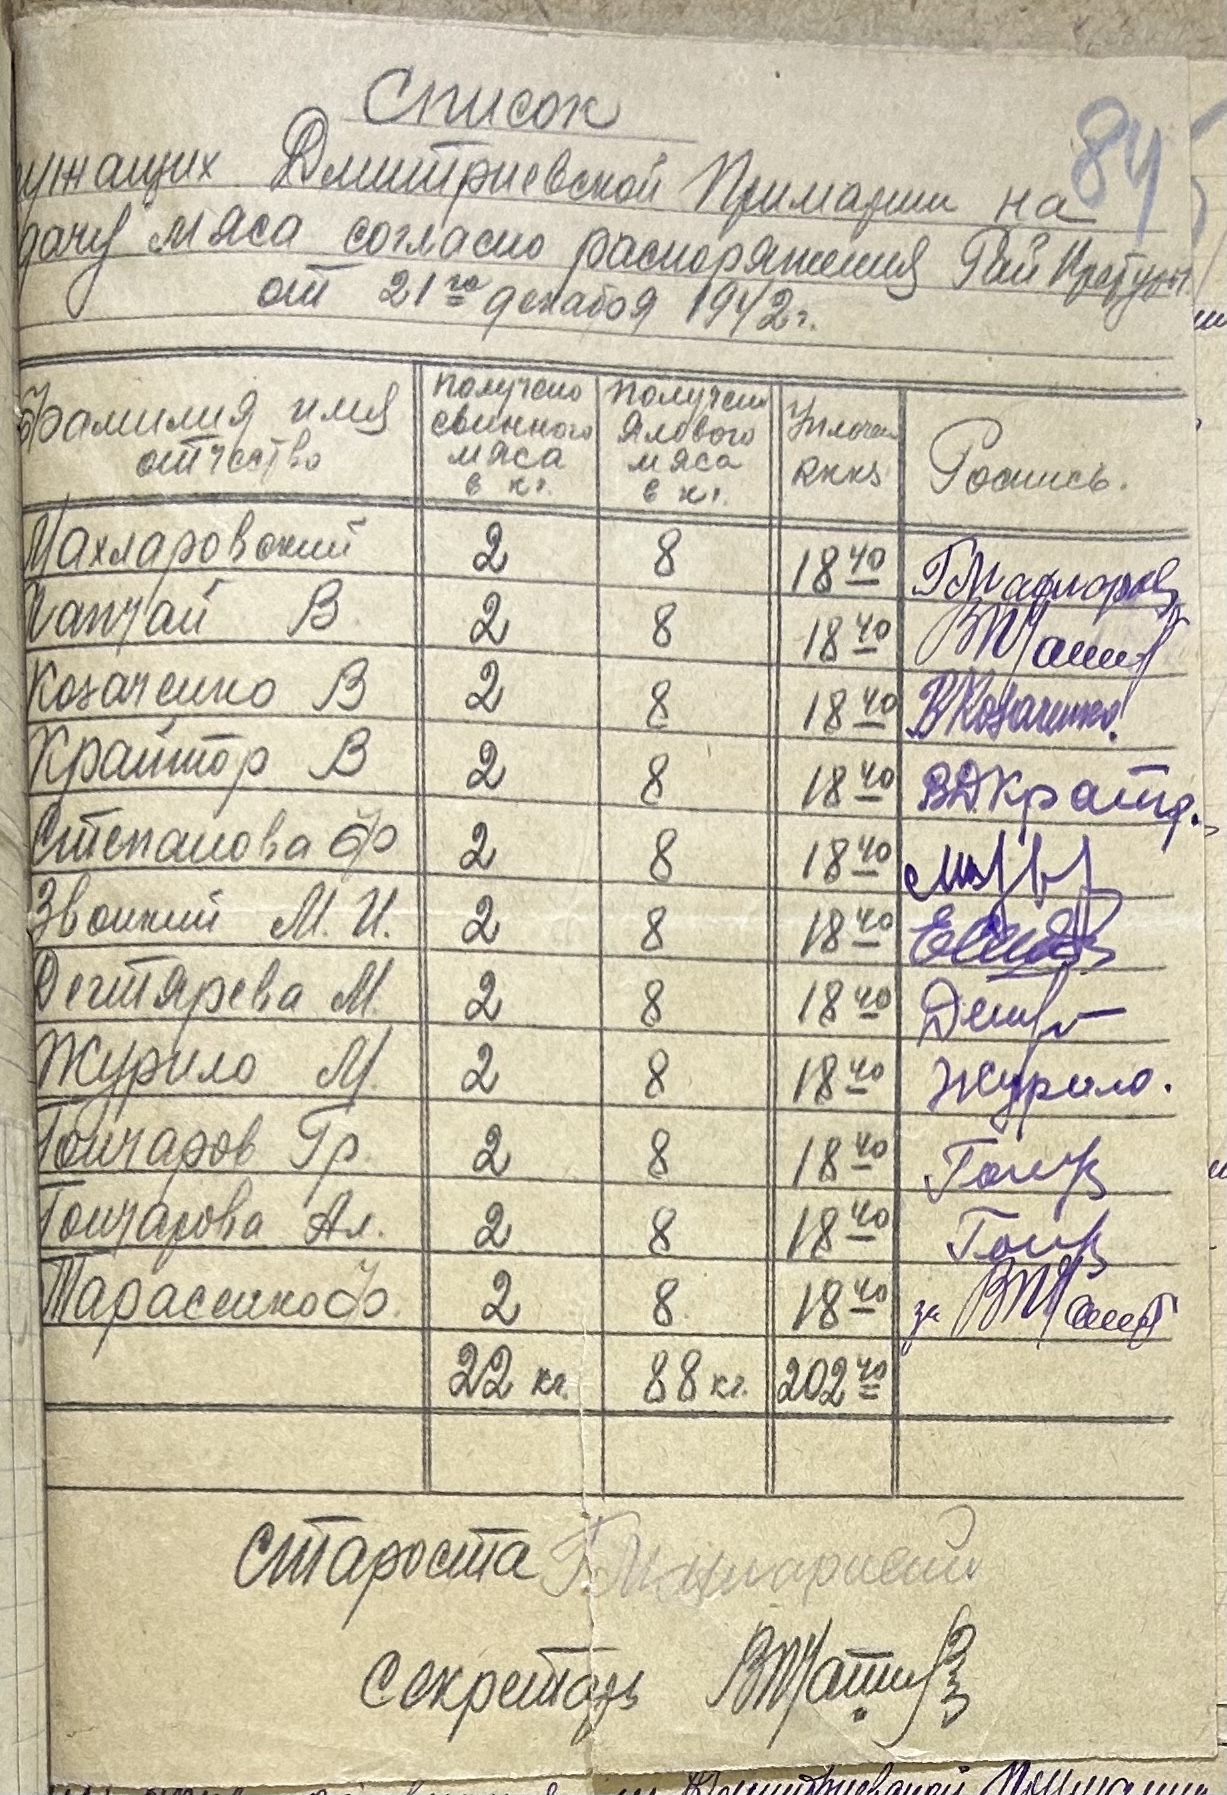 84
Список
ужащих Дмитриевской Примарии на
дачу мяса согласно распоряжения Рай Претуры
от 21го декабря 1942 г.
Фамилия имя отчество | Получено свинного мяса в кг. | Получен ялового мяса в кг. | Уплочен RKKS | Роспись.
Махларовский 2 8 18 40
Чапчай В 2 8 18 40
Козаченко В 2 8 18 40 ВКозаченко
Крайтор В 2 8 18 40 ВДКрайт.
Степанова Ф 2 8 18 40
Звонкий М. И. 2 8 18 40
Дегтярева М. 2 8 18 40
Журило М. 2 8 18 40 Журило.
Гончаров Гр. 2 8 18 40 Гонч
Гончарова Ал. 2 8 18 40 Гонч
Тарасенко Ф. 2 8 18 40 за
22 кг. 88 кг. 202 40
Староста
Секретарь